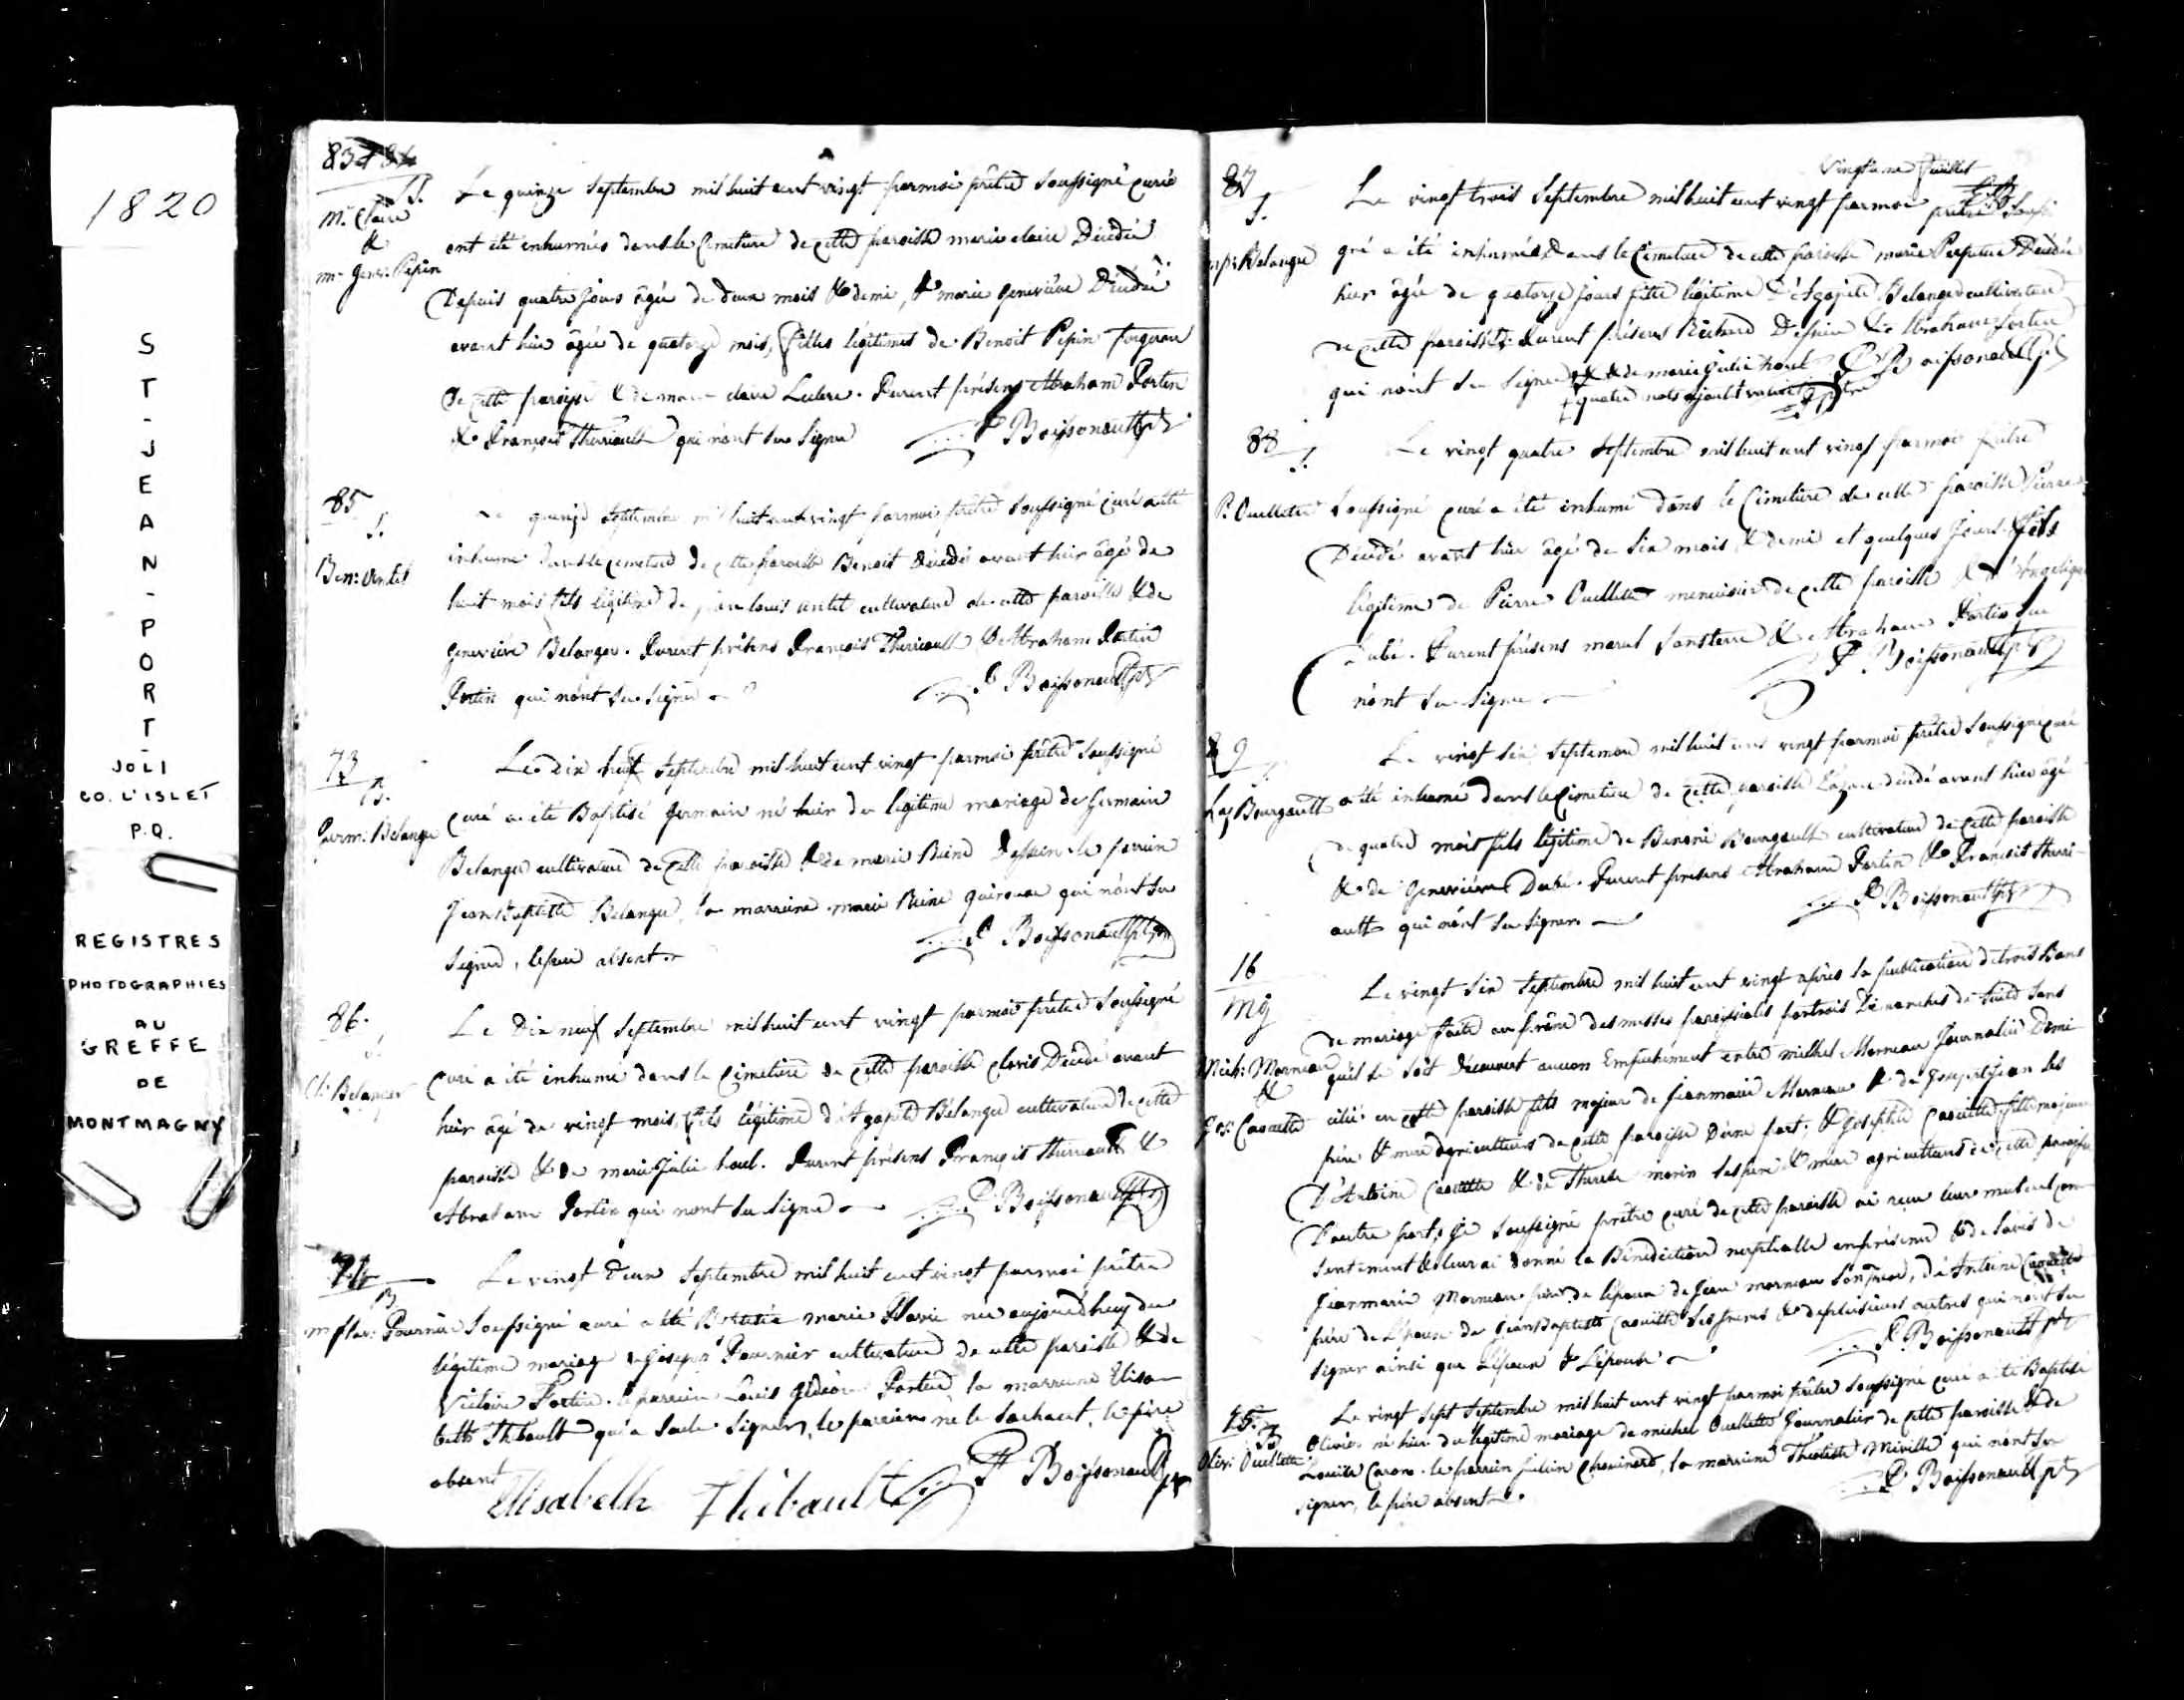 1820
S
T
-
J
E
A
N
-
P
O
R
T
-
JOLI
CO. L'ISLET
P.Q.
REGISTRES
PHOTOGRAPHIES
AU
GREFFE
DE
MONTMAGNY
83 & 84
S.
Mie Claire
&
mie Genev: Pepin
Le quinze Septembre mil huit cent vingt par moi prêtre Soussigné curé
ont été inhumées dans le Cimetiere de cette paroisse marie claire Décédée
Depuis quatre jours âgée de deux mois & demi, & marie geneviève Décédée
avant hier âgée de quatorze mois, filles légitimes de Benoit Pepin forgeron
de cette paroisse & de marie claire Leclerc. Furent présens Abraham Fortin
& François Thérriault qui n'ont su Signer
F Boissonault ptr
85
S.
Ben: Anctil
quinze Septembre mil huit cent vingt par moi prêtre Soussigné curé a été
inhumé dans le cimetiere de cette paroisse Benoit Décédé avant hier âgé de
huit mois fils légitime de jean louis anctil cultivateur de cette paroisse & de
geneviève Belanger. Furent présens François Thérriault & Abraham Fortin
Fortin qui n'ont su signer
F Boissonault ptr
73
B.
Germ: Belanger
Le dix neuf Septembre mil huit cent vingt par moi prêtre Soussigné
curé a été Baptisé Germain né hier du légitime mariage de Germain
Belanger cultivateur de cette paroisse & de marie Reine Dessein le parrein
Jean Baptiste Belanger, la marreine marie Reine qui n'ont su
Signer, le pere absent
F Boissonault ptr
86.
S.
Cl: Belanger
Le Dix neuf Septembre mil huit cent vingt par moi prêtre Soussigné
curé a été inhumé dans le Cimetiere de cette paroisse clovis Décédé avant
hier âgé de vingt mois, fils légitime d'Agapite Bélanger cultivateur de cette
paroisse & de marie Julie houl. Furent présens François Thérriault &
Abraham Fortin qui n'ont su Signer
F Boissonault ptr
74
B
m flav: Fournier
Le vingt deux Septembre mil huit cent vingt par moi prêtre
Soussigné curé a été Baptisée marie Flavie née aujourd'huy du
légitime mariage de Joseph Fournier cultivateur de cette paroisse & de
Victoire Fortin. le parrein Louis Gédéon Fortin, la marreine Elisa-
beth Thibault qui a Seule Signer, le parrein ne le Sachant, le père
absent
Elisabelh Thibault
F Boissonault ptr
87
S.
mp: Belanger
Vingtieme feuillet
Le vingt trois Septembre mil huit cent vingt par moi prêtre Soussi
gné a été inhumée Dans le Cimetiere de cette paroisse marie Perpetue Décédée
hier âgée de quatorze jours fille légitime D'Agapite Belanger cultivateur
de cette paroisse Furent présens Richard Dessein & Abraham Fortin
qui n'ont su Signer & de marie Julie houl F Boissonault ptr
+ quatre mots ajoutés
88
S.
P. Ouellette
Le vingt quatre Septembre mil huit cent vingt par moi prêtre
Soussigné curé a été inhumé dans le Cimetiere de cette paroisse Pierre
Décédé avant hier âgé de Six mois & demi et quelques jours fils
légitime de Pierre Ouellette menuisier de cette paroisse & d'Angelique
Dubé. Furent présens marcel Sansterre & Abraham Fortin qui
n'ont su signer
F Boissonault ptr
89
Laz Bourgault
Le vingt six Septembre mil huit cent vingt par moi prêtre Soussigné curé
a été inhumé dans le Cimetiere de cette paroisse Lazare décédé avant hier âgé
de quatre mois fils légitime de Benoni Bourgault cultivateur de cette paroisse
& de Geneviève Dubé. Furent présens Abraham Fortin & François Therri-
ault qui n'ont su signer
F Boissonault ptr
16
Mg
Mich: Morneau
&
Jos: Caouette
Le vingt six Septembre mil huit cent vingt après la publication de trois Bans
de mariage faite au prône des messes paroissiales par trois Dimanches de Suite sans
qu'il se soit découvert aucun Empêchement entre michel Morneau Journalier Domi-
cilié en cette paroisse fils majeur de jean marie Morneau & de Josephte Jean ses
père & mere agriculteurs de cette paroisse D'une part; & Josephte Caouette fille majeure
D'Antoine Caouette & de Therese morin ses père & mere agriculteurs de cette paroisse
D'autre part, Je Soussigné prêtre curé de cette paroisse ai reçu leur mutuel con-
sentiment & leur ai donné la Bénédiction nuptialle en présence & de l'avis de
Jean marie Morneau père de l'époux de Jean morneau Son frere, de Antoine Caouette
père de L'épouse de Jean Baptiste Caouette Ses freres & de plusieurs autres qui n'ont su
signer ainsi que L'époux & L'épouse
F Boissonault ptr
75.
B
Oliv: Ouellette
Le vingt sept Septembre mil huit cent vingt par moi prêtre Soussigné curé a été Baptisé
Olivier né hier du légitime mariage de michel Ouellette Journalier de cette paroisse & de
Louise Caron. le parrein Julien Chouinard, la marreine Théotiste Miville qui n'ont su
signer, le père absent.
F Boissonault ptr